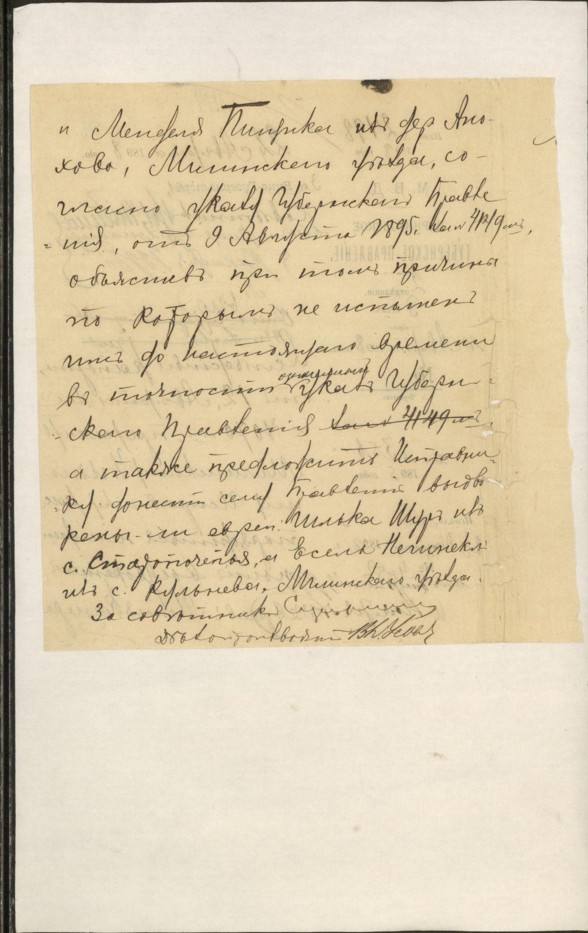 и Менделя Пинчука изъ дер. Ано-
хово, Мглинскаго уѣзда, со-
гласно указу Губернскаго Правле
=нія, отъ 9 Августа 1895 г. за № 4149,
объяснивъ при томъ причины
по которымъ не исполненъ
имъ до настоящаго времени
въ точности означенный указъ Губерн-
=скаго Правленія за № 4149,
а также предложить Исправни-
=ку донести сему Правленію выдво
рены-ли евреи: Илька Шуръ изъ
с. Старополья, а Есель
изъ с. Кульнева, Мглинскаго уѣзда.
За совѣтника
Дѣлопроизводитель